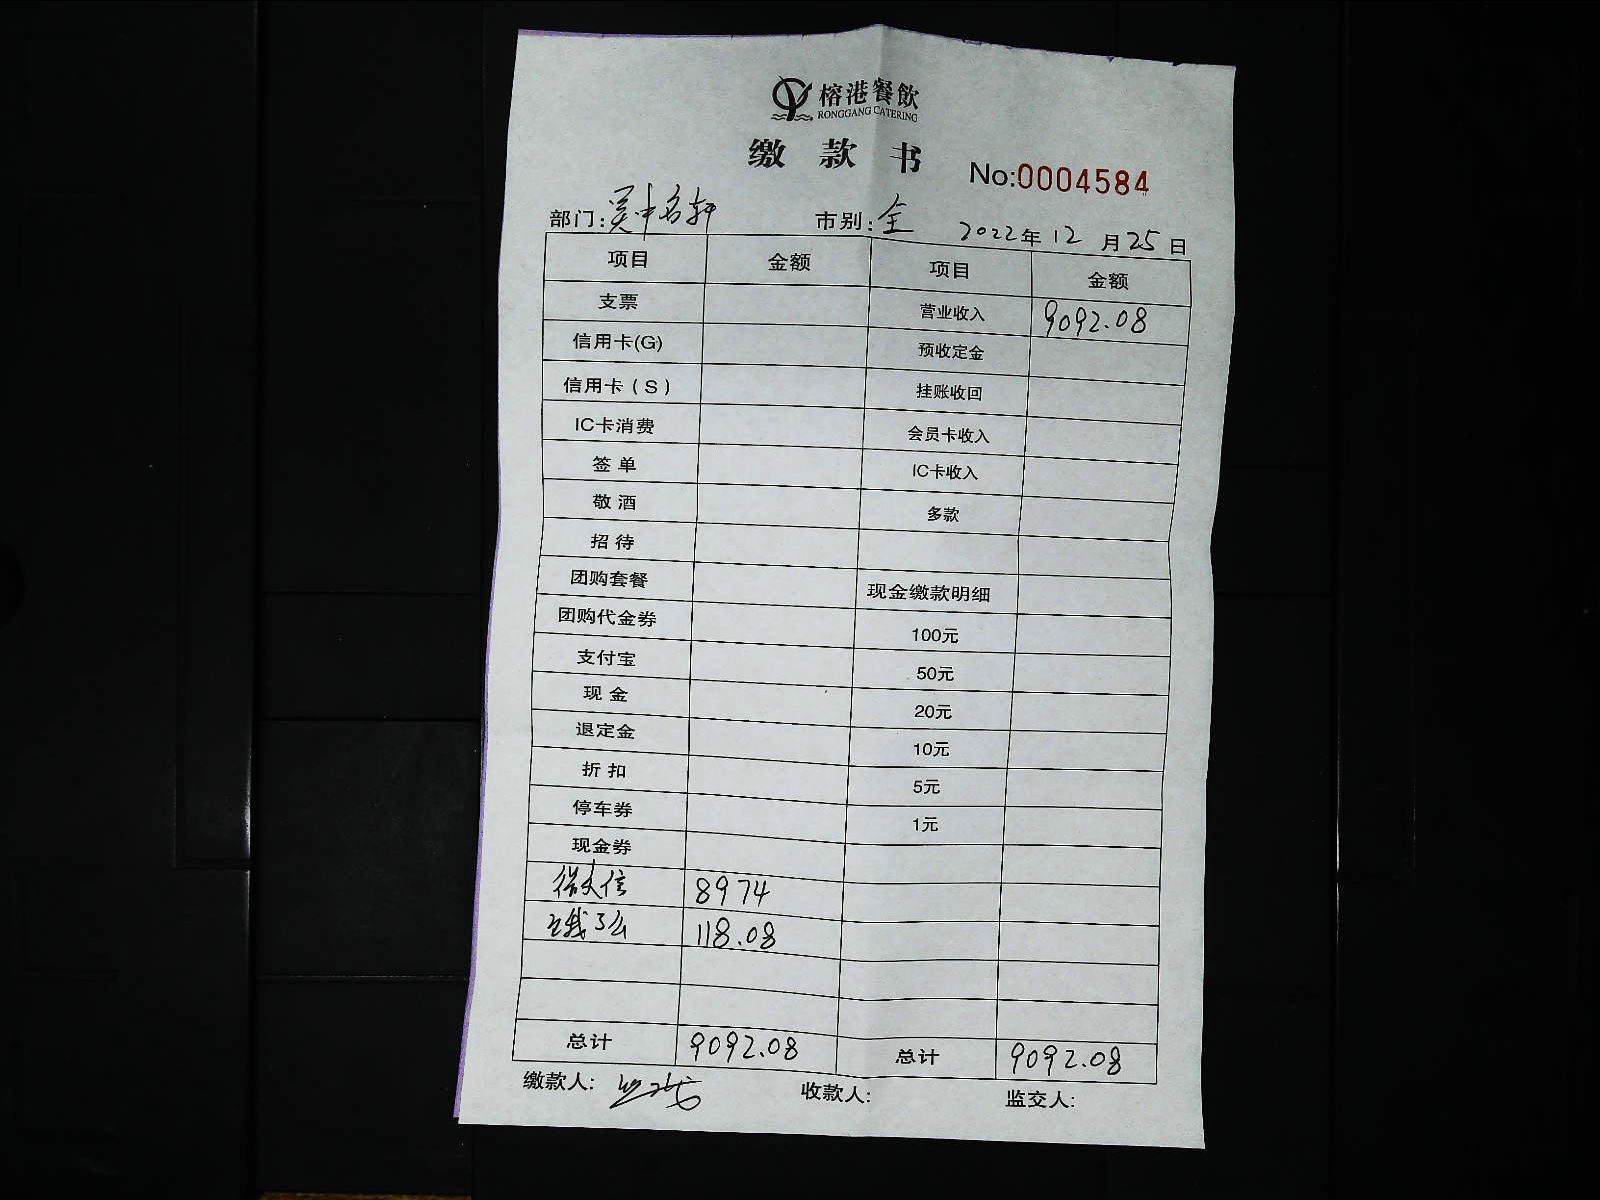 榕港餐飲
RONGGANG CATERING
缴款书 No:0004584
部门:吴中名轩 市别:全 2022年12月25日
项目 金额 项目 金额
支票 营业收入 9092.08
信用卡(G) 预收定金
信用卡(S) 挂账收回
IC卡消费 会员卡收入
签单 IC卡收入
敬酒 多款
招待
团购套餐 现金缴款明细
团购代金券 100元
支付宝 50元
现金 20元
退定金 10元
折扣 5元
停车券 1元
现金券
微信 8974
饿了么 118.08
总计 9092.08 总计 9092.08
缴款人: 收款人: 监交人: